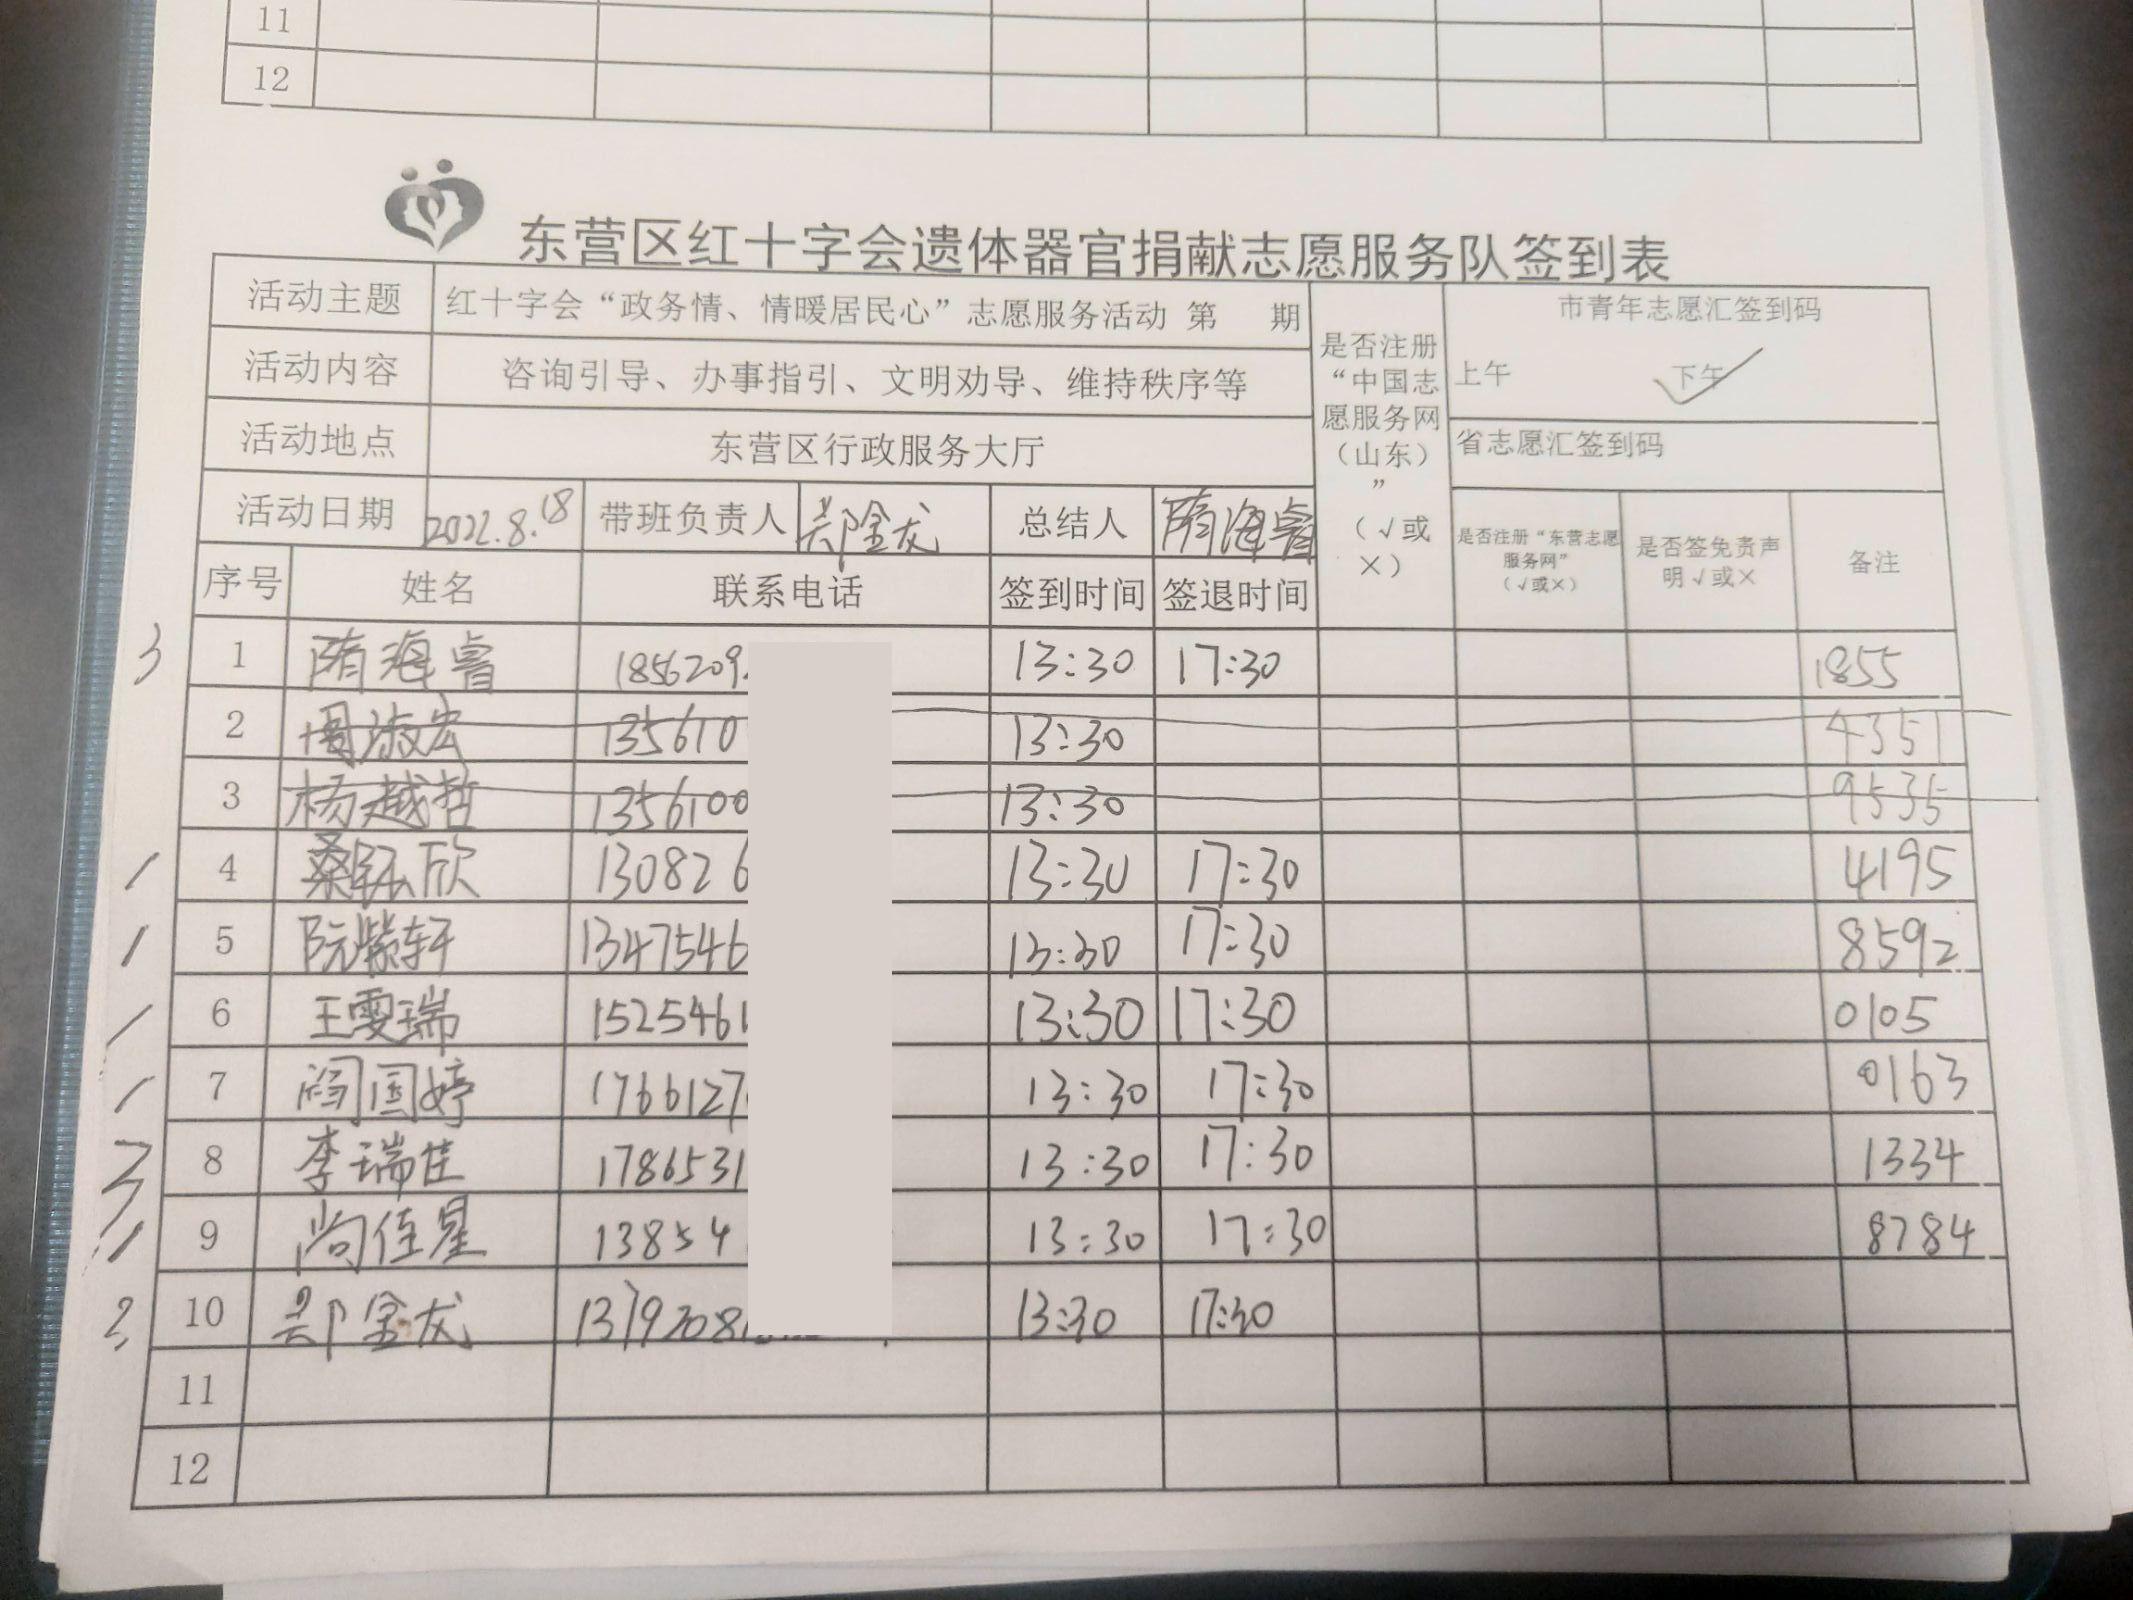 11
12
东营区红十字会遗体器官捐献志愿服务队签到表
活动主题 红十字会“政务情、情暖居民心”志愿服务活动 第 期 是否注册“中国志愿服务网（山东）”（√或×） 市青年志愿汇签到码
活动内容 咨询引导、办事指引、文明劝导、维持秩序等 上午 下午
活动地点 东营区行政服务大厅 省志愿汇签到码
活动日期 2022.8.18 带班负责人 郑金龙 总结人 隋海睿 是否注册“东营志愿服务网”（√或×） 是否签免责声明√或× 备注
序号 姓名 联系电话 签到时间 签退时间
3 1 隋海睿 1856209 13:30 17:30 1855
2 周淑宏 135610 13:30 4351
3 杨越哲 1356100 13:30 9535
4 桑钰欣 130826 13:30 17:30 4195
5 阮紫轩 1347546 13:30 17:30 8592
6 王雯瑞 1525461 13:30 17:30 0105
7 阎国婷 1766127 13:30 17:30 0163
8 李瑞佳 1786531 13:30 17:30 1334
9 尚佳星 13854 13:30 17:30 8784
2 10 郑金龙 13792081 13:30 17:30
11
12